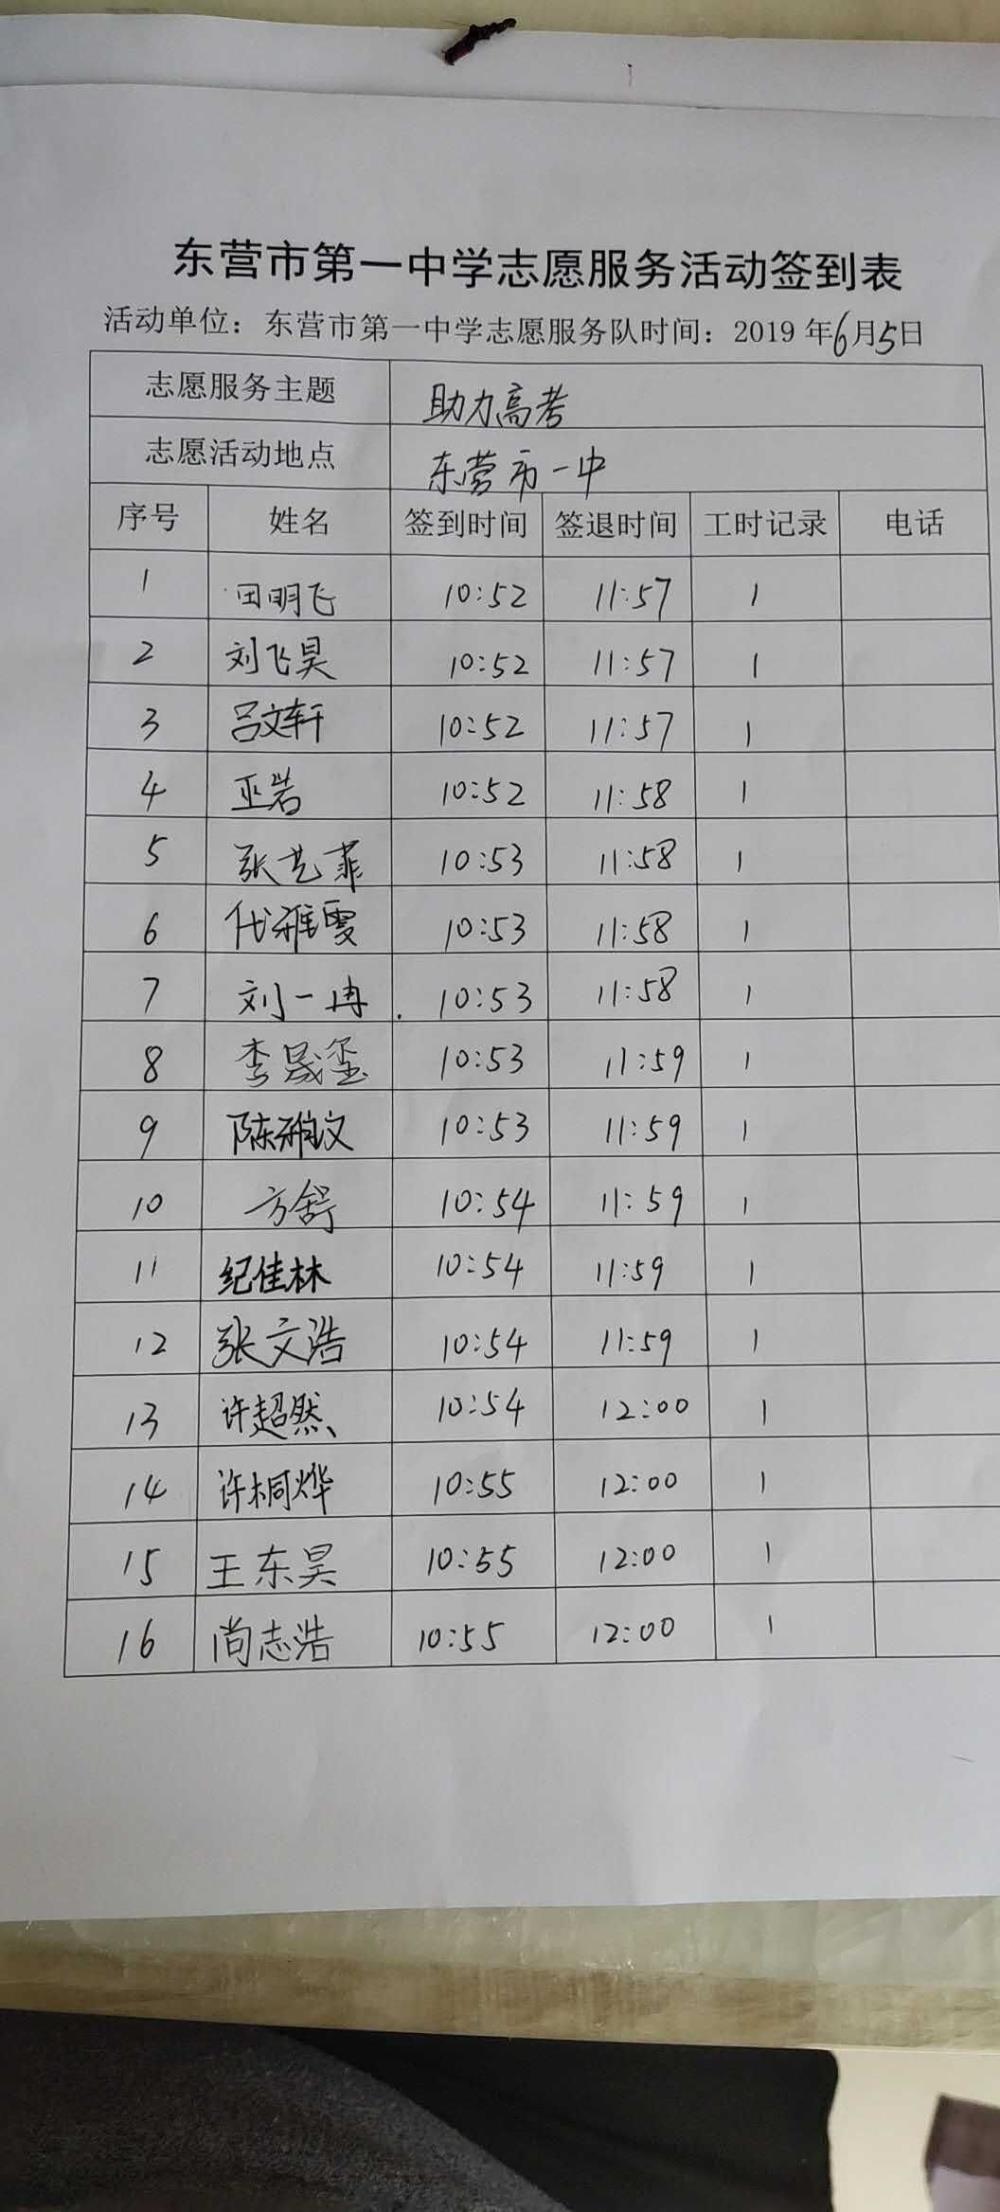 东营市第一中学志愿服务活动签到表
活动单位：东营市第一中学志愿服务队时间：2019年6月5日
志愿服务主题 助力高考
志愿活动地点 东营市一中
序号 姓名 签到时间 签退时间 工时记录 电话
1 田明飞 10:52 11:57 1
2 刘飞昊 10:52 11:57 1
3 吕文轩 10:52 11:57 1
4 巫岩 10:52 11:58 1
5 张艺菲 10:53 11:58 1
6 代雅雯 10:53 11:58 1
7 刘一冉 10:53 11:58 1
8 李晟玺 10:53 11:59 1
9 陈雅文 10:53 11:59 1
10 方舒 10:54 11:59 1
11 纪佳林 10:54 11:59 1
12 张文浩 10:54 11:59 1
13 许超然 10:54 12:00 1
14 许桐烨 10:55 12:00 1
15 王东昊 10:55 12:00 1
16 尚志浩 10:55 12:00 1